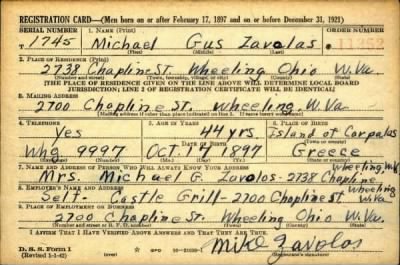 REGISTRATION CARD—(Men born on or after February 17, 1897 and on or before December 31, 1921)
SERIAL NUMBER 1. NAME (Print) ORDER NUMBER
1745 Michael Gus Zavolas
(First) (Middle) (Last)
2. PLACE OF RESIDENCE (Print)
2738 Chapline St. Wheeling Ohio W. Va.
(Number and street) (Town, township, village, or city) (County) (State)
[THE PLACE OF RESIDENCE GIVEN ON THE LINE ABOVE WILL DETERMINE LOCAL BOARD
JURISDICTION; LINE 2 OF REGISTRATION CERTIFICATE WILL BE IDENTICAL]
3. MAILING ADDRESS
2700 Chapline St. Wheeling. W. Va.
[Mailing address if other than place indicated on line 2. If same insert word same]
4. TELEPHONE 5. AGE IN YEARS 6. PLACE OF BIRTH
Yes 44 yrs. Island of Carpalas
DATE OF BIRTH (Town or county)
Whg 9997 Oct. 17 1897 Greece
(Exchange) (Number) (Mo.) (Day) (Yr.) (State or country)
7. NAME AND ADDRESS OF PERSON WHO WILL ALWAYS KNOW YOUR ADDRESS Wheeling, W. Va.
Mrs. Michael G. Zavolas-2738 Chapline
8. EMPLOYER'S NAME AND ADDRESS Wheeling
Self- Castle Grill-2700 Chapline St W. Va
9. PLACE OF EMPLOYMENT OR BUSINESS
2700 Chapline St. Wheeling Ohio W. Va.
(Number and street or R. F. D. number) (Town) (County) (State)
I AFFIRM THAT I HAVE VERIFIED ABOVE ANSWERS AND THAT THEY ARE TRUE.
D. S. S. Form 1
(Revised 1-1-42) GPO Mike Zavolas
(Registrant's signature)